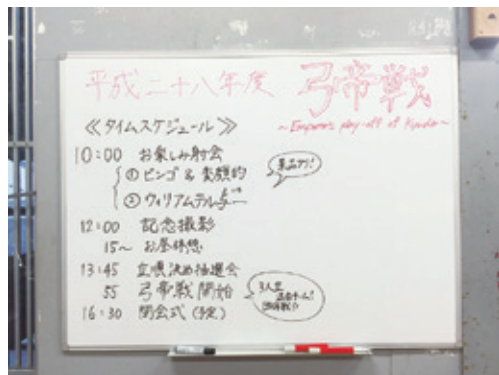 平成二十八年度 弓帝戦
~Emperors play-off of Kyudo~
≪タイムスケジュール≫
10:00 お楽しみ射会
① ビンゴ & 変顔的
景品アリ!
② ウィリアムテル
12:00 記念撮影
15~ お昼休憩
13:45 立順決め抽選会
55 弓帝戦開始
3人立
団体戦!?
16:30 閉会式(予定)